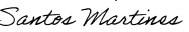 Santos Martines